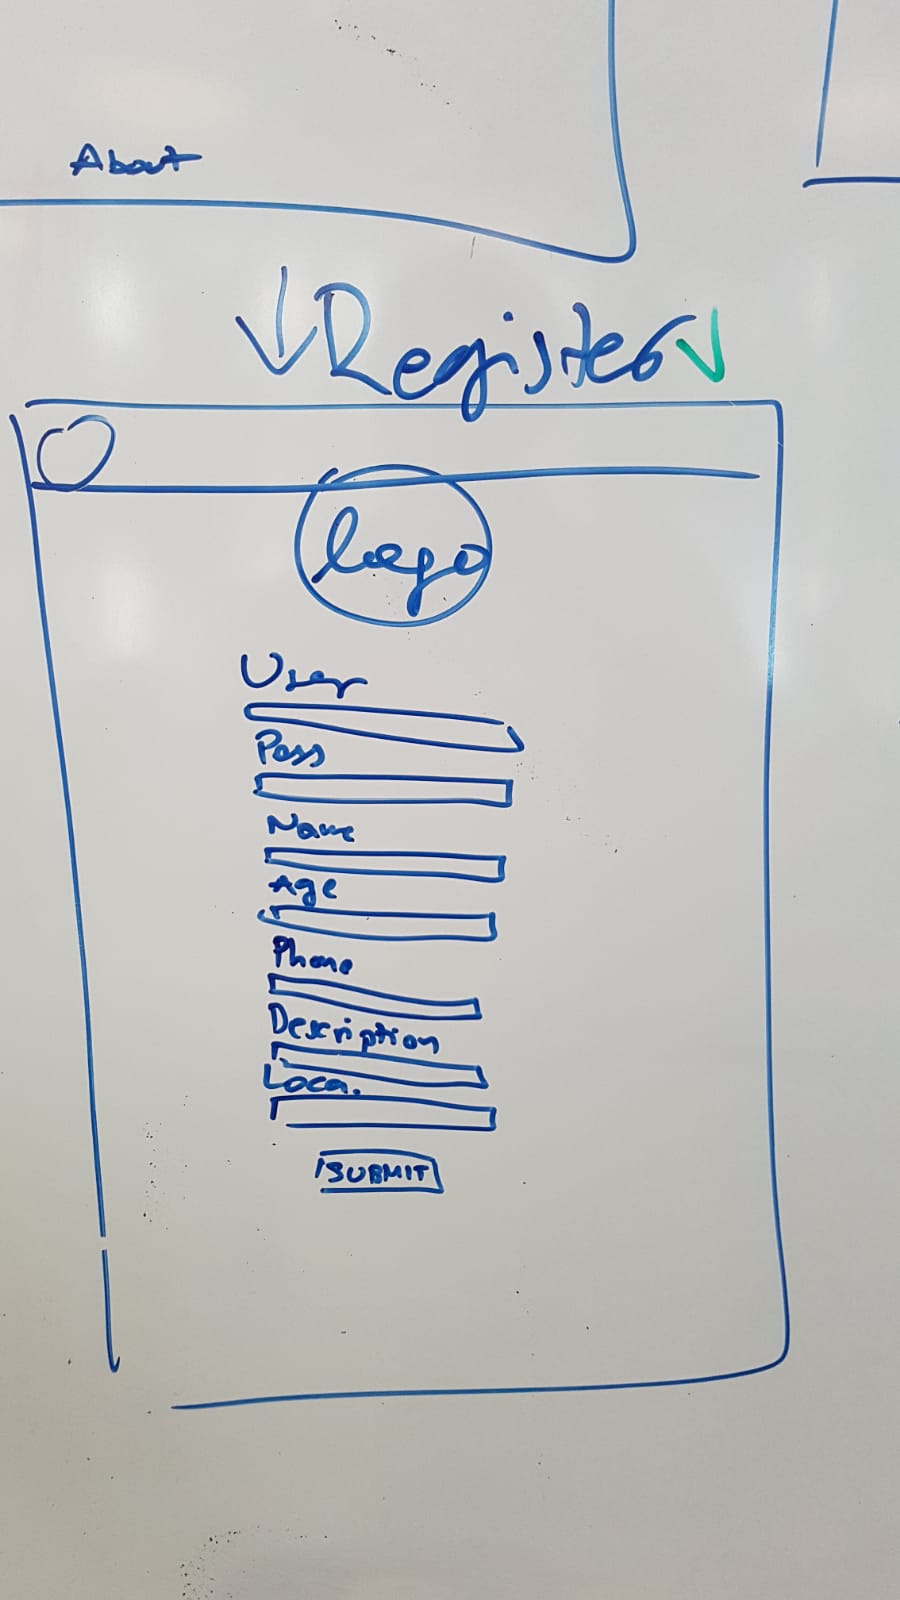 About
Register
logo
User
Pass
Name
Age
Phone
Description
Loca.
SUBMIT